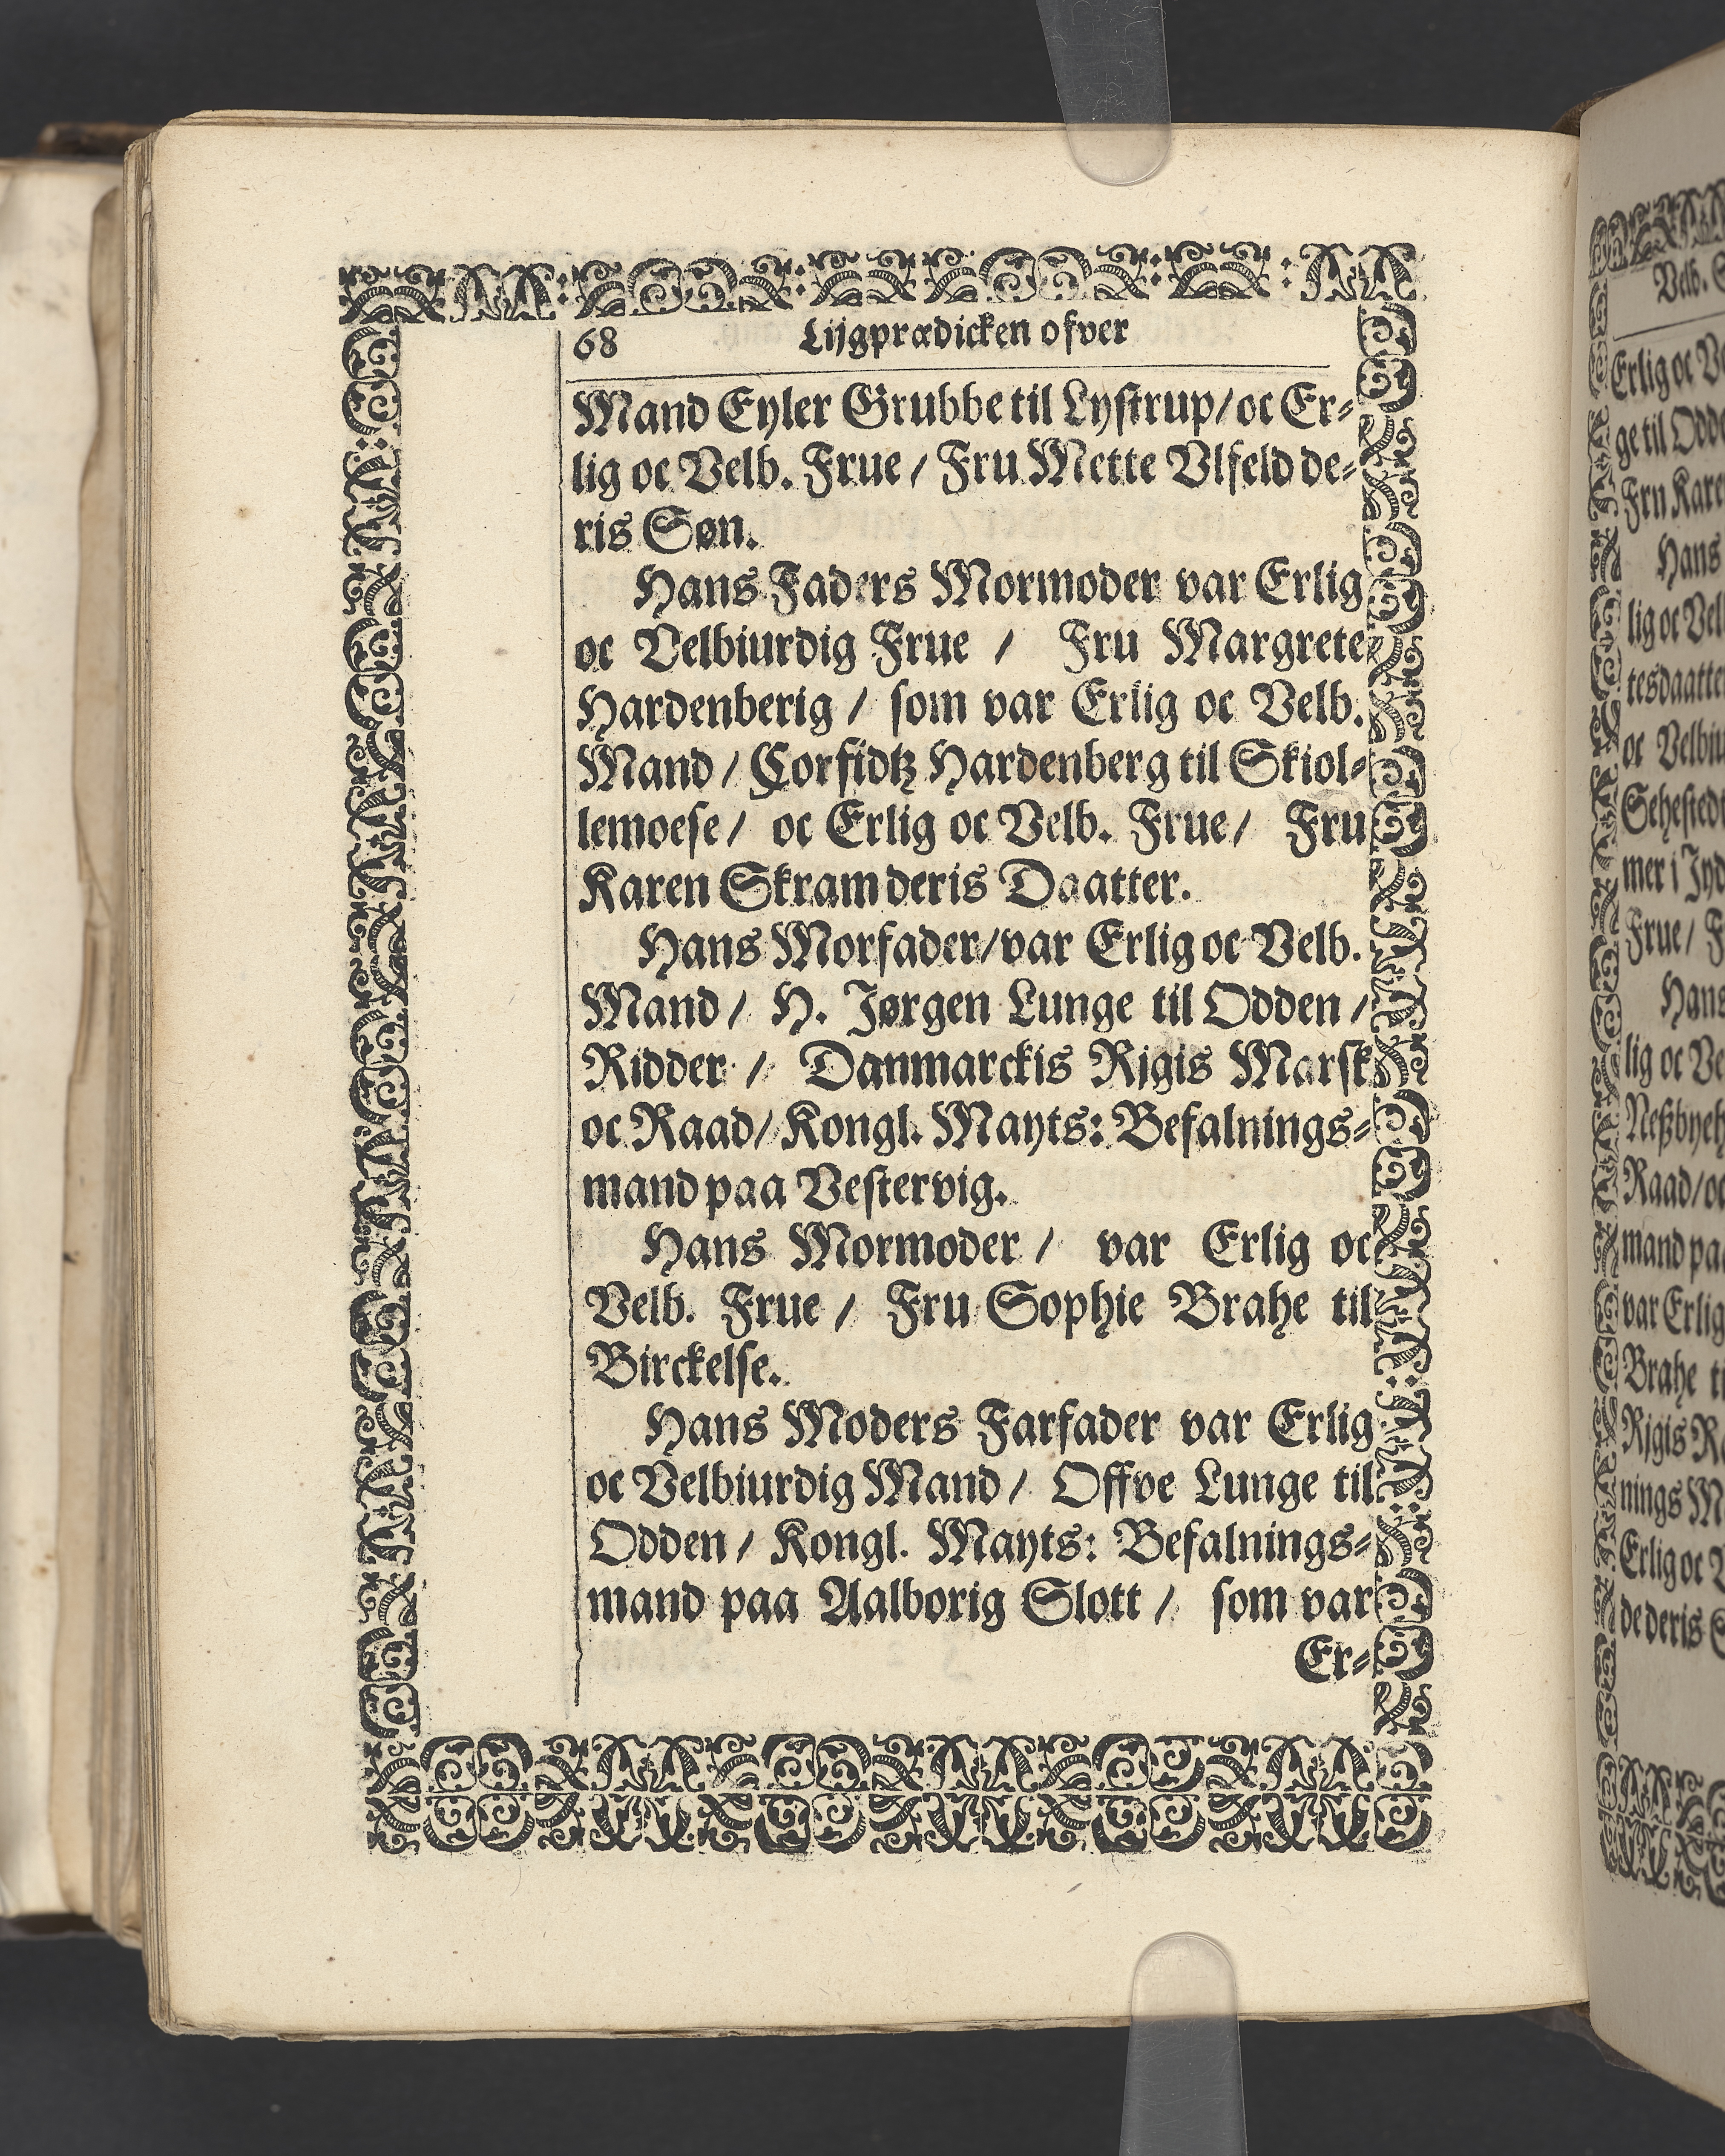 68 Lijgprædicken ofver
Mand Eyler Grubbe til Lystrup/ oc Er-
lig oc Velb. Frue / Fru Mette Vlfeld de-
ris Søn.
Hans Faders Mormoder var Erlig
oc Velbiurdig Frue / Fru Margrete
Hardenberig / som var Erlig oc Velb.
Mand / Corfidtz Hardenberg til Skiol-
lemoese / oc Erlig oc Velb. Frue / Fru
Karen Skram deris Daatter.
Hans Morfader/var Erlig oc Velb.
Mand / H. Jørgen Lunge til Odden /
Ridder / Danmarckis Rigis Marsk
oc Raad/ Kongl. Mayts: Befalnings-
mand paa Vestervig.
Hans Mormoder / var Erlig oc
Velb. Frue / Fru Sophie Brahe til
Birckelse.
Hans Moders Farfader var Erlig
oc Velbiurdig Mand / Offve Lunge til
Odden / Kongl. Mayts: Befalnings-
mand paa Aalborig Slott / som var
Er-
Velb.
Erlig oc
ge til
Hans
lig oc
oc
mer i
Frue /
Hans
lig oc
Raad/oc
mand paa
var Erlig
Brahe
Rigis
nings
Erlig oc
de deris